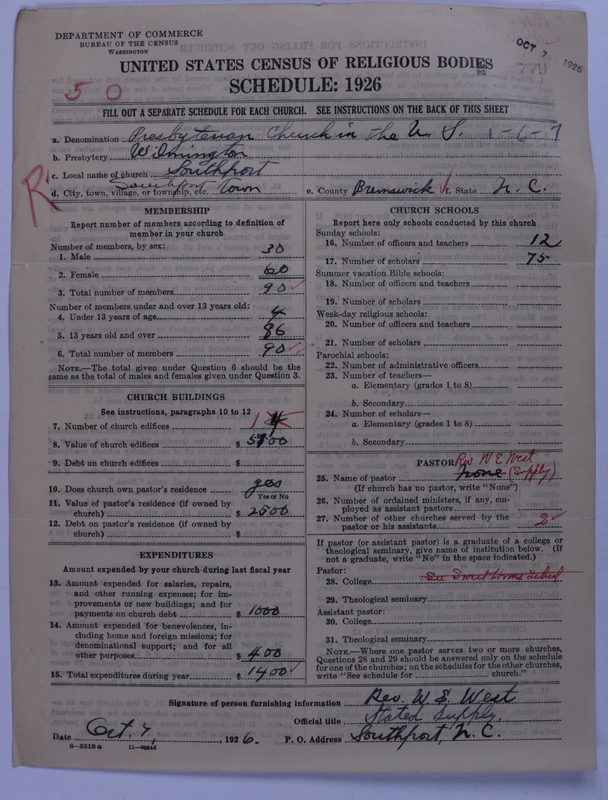 DEPARTMENT OF COMMERCE
BUREAU OF THE CENSUS
WASHINGTON
OCT 7 1926
779
UNITED STATES CENSUS OF RELIGIOUS BODIES
SCHEDULE: 1926
5 0
FILL OUT A SEPARATE SCHEDULE FOR EACH CHURCH. SEE INSTRUCTIONS ON THE BACK OF THIS SHEET
a. Denomination Presbyterian Church in the U. S. 1-6-7
b. Presbytery Wilmington
c. Local name of church Southport
R
d. City, town, village, or township, etc. Southport Town e. County Brunswick State N. C.
MEMBERSHIP
Report number of members according to definition of
member in your church
Number of members, by sex:
1. Male 30
2. Female 60
3. Total number of members 90
Number of members under and over 13 years old:
4. Under 13 years of age 4
5. 13 years old and over 86
6. Total number of members 90
NOTE.—The total given under Question 6 should be
same as the total of males and females given under Question 3.
CHURCH BUILDINGS
See instructions, paragraphs 10 to 12
7. Number of church edifices 1
8. Value of church edifices $ 5100
9. Debt on church edifices $
10. Does church own pastor's residence yes
Yes or No
11. Value of pastor's residence (if owned by
church) $ 2500
12. Debt on pastor's residence (if owned by
church) $
EXPENDITURES
Amount expended by your church during last fiscal year
13. Amount expended for salaries, repairs,
and other running expenses; for im-
provements or new buildings; and for
payments on church debt $ 1000
14. Amount expended for benevolences, in-
cluding home and foreign missions; for
denominational support; and for all
other purposes $ 400
15. Total expenditures during year $ 1400
CHURCH SCHOOLS
Report here only schools conducted by this church
Sunday schools:
16. Number of officers and teachers 12
17. Number of scholars 75
Summer vacation Bible schools:
18. Number of officers and teachers
19. Number of scholars
Week-day religious schools:
20. Number of officers and teachers
21. Number of scholars
Parochial schools:
22. Number of administrative officers
23. Number of teachers—
a. Elementary (grades 1 to 8)
b. Secondary
24. Number of scholars—
a. Elementary (grades 1 to 8)
b. Secondary
PASTOR Rev W E West
25. Name of pastor none (Supply)
(If church has no pastor, write "None")
26. Number of ordained ministers, if any, em-
ployed as assistant pastors
27. Number of other churches served by the
pastor or his assistants 2
If pastor (or assistant pastor) is a graduate of a college or
theological seminary, give name of institution below. (If
not a graduate, write "No" in the space indicated.)
Pastor:
28. College See Sweet Home
29. Theological seminary
Assistant pastor:
30. College
31. Theological seminary
NOTE.—Where one pastor serves two or more churches,
Questions 28 and 29 should be answered only on the schedule
for one of the churches; on the schedules for the other churches,
write "See schedule for church."
Signature of person furnishing information Rev. W. E. West
Official title Stated Supply.
Date Oct. 7, 1926. P. O. Address Southport, N. C.
8-5518 a